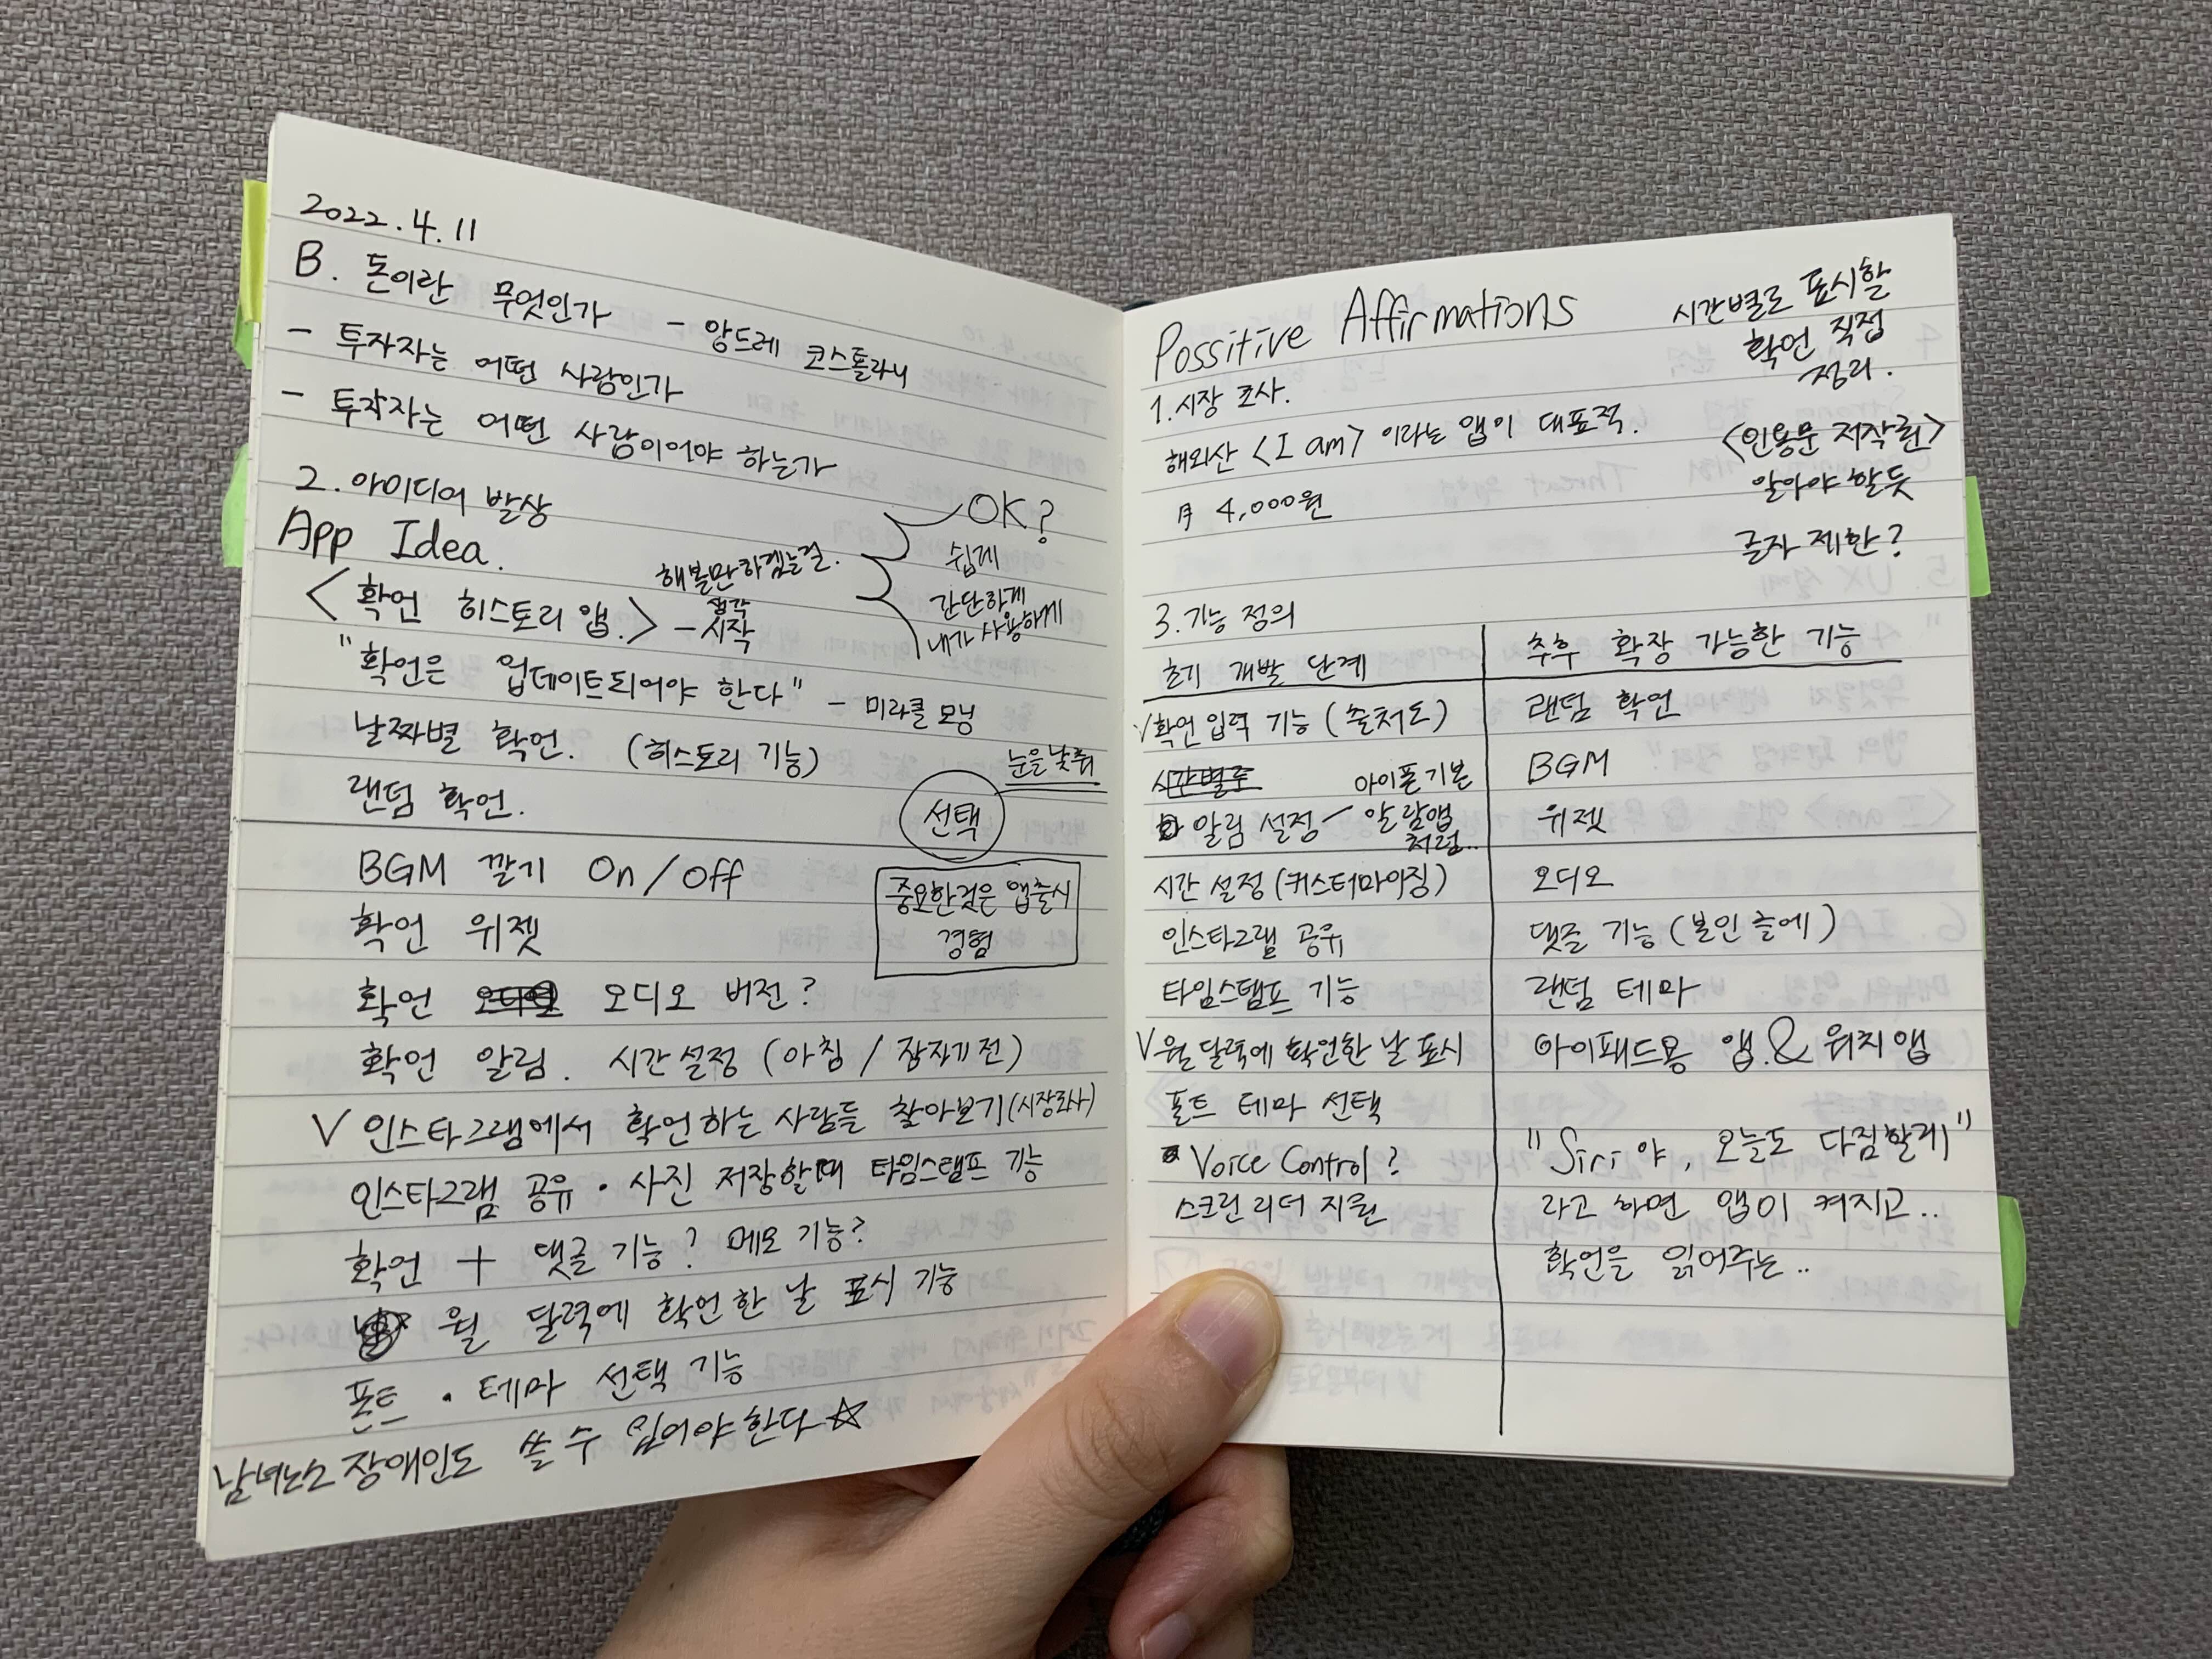 2022.4.11
B. 돈이란 무엇인가 - 앙드레 코스톨라니
- 투자자는 어떤 사람인가
- 투자자는 어떤 사람이어야 하는가
2. 아이디어 발상
App Idea.
<확언 히스토리 앱.> - 시작
해볼만하겠는걸.
생각
OK?
쉽게
간단하게
내가 사용하게
"확언은 업데이트되어야 한다" - 미라클 모닝
날짜별 확언. (히스토리 기능)
랜덤 확언.
눈을 낮춰
선택
BGM 깔기 On/Off
중요한것은 앱출시
경험
확언 위젯
확언 오디오 버전?
확언 알림. 시간 설정 (아침 / 잠자기전)
V 인스타그램에서 확언하는 사람들 찾아보기(시장조사)
인스타그램 공유 · 사진 저장할때 타임스탬프 기능
확언 + 댓글 기능? 메모 기능?
월 달력에 확언한 날 표시 기능
폰트 · 테마 선택 기능
남녀노소 장애인도 쓸 수 있어야 한다☆
Possitive Affirmations
시간별로 표시할
확언 직접
정리.
1. 시장 조사.
해외산 <I am> 이라는 앱이 대표적.
月 4,000원
<인용문 저작권>
알아야 할듯
글자 제한?
3. 기능 정의
초기 개발 단계
V 확언 입력 기능 (출처도)
시간별로
알림 설정 - 아이폰 기본
알람앱
처럼..
시간 설정 (커스터마이징)
인스타그램 공유
타임스탬프 기능
V 월 달력에 확언한 날 표시
폰트 테마 선택
Voice Control?
스크린 리더 지원
추후 확장 가능한 기능
랜덤 확언
BGM
위젯
오디오
댓글 기능 (본인 글에)
랜덤 테마
아이패드용 앱 & 워치 앱
"Siri야, 오늘도 다짐할래"
라고 하면 앱이 켜지고..
확언을 읽어주는..